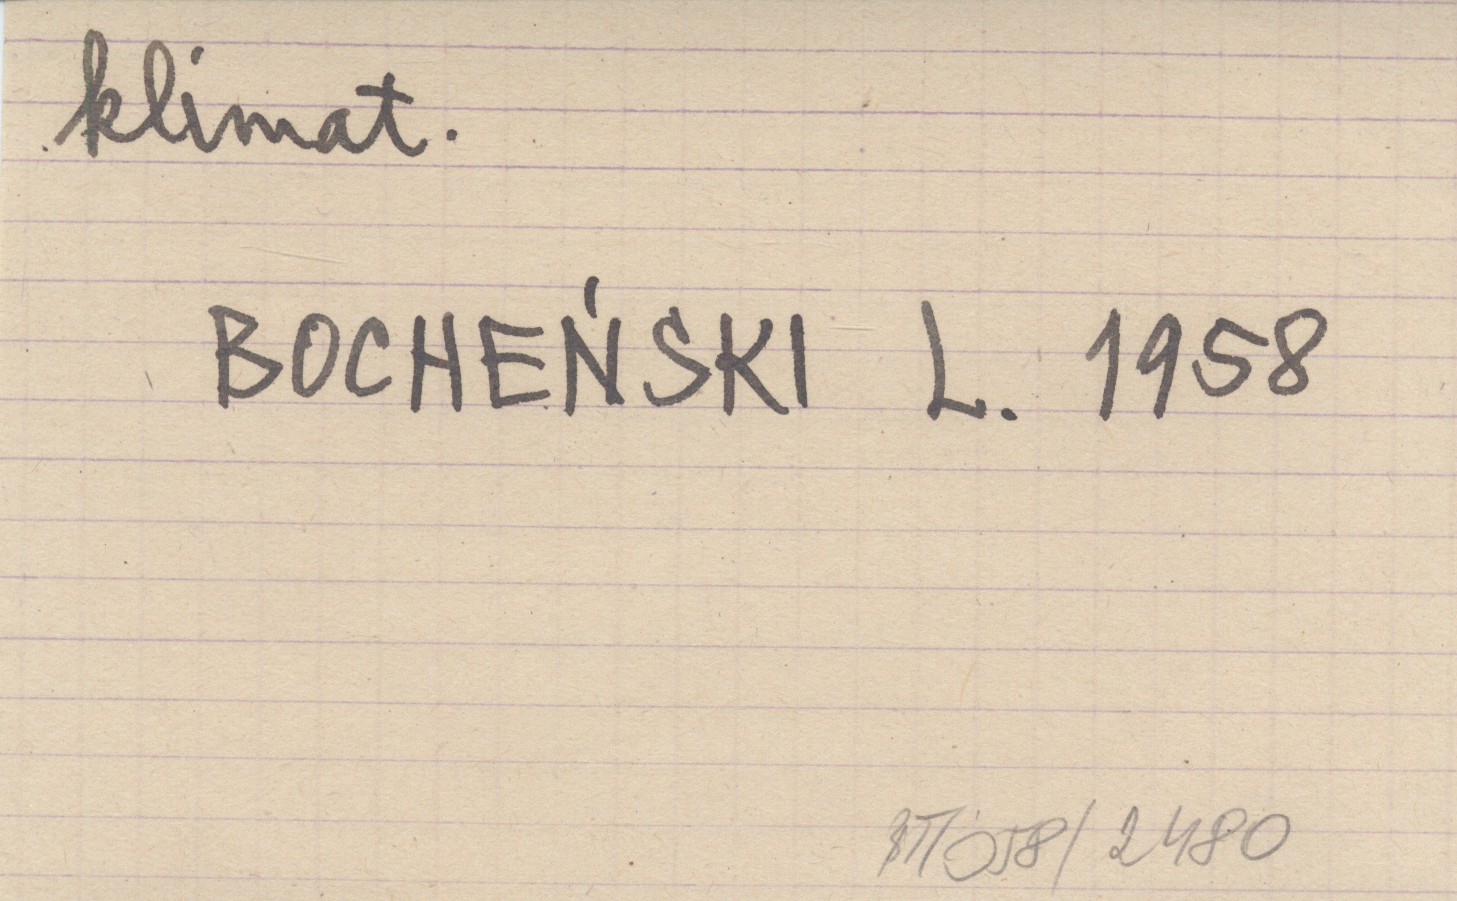 klimat.
BOCHEŃSKI L. 1958
/2480